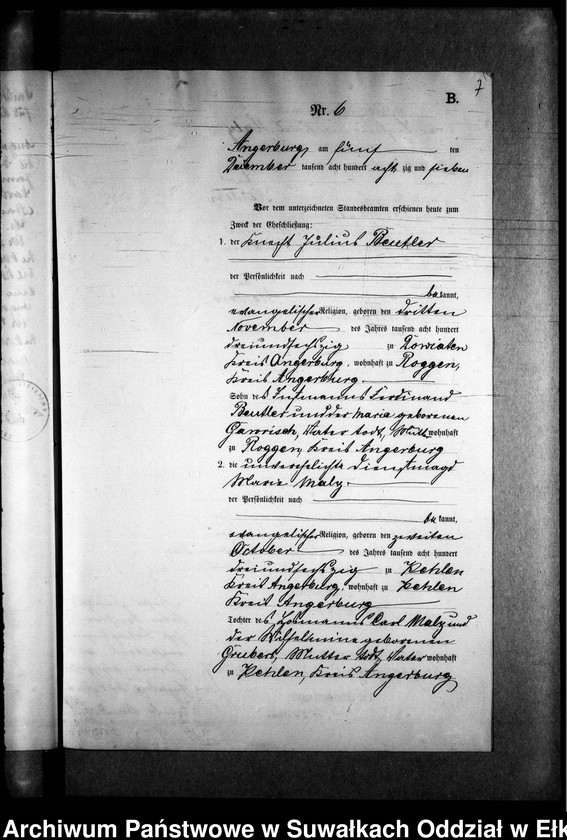 7
B.
Nr. 6
Angerburg, am fünf ten
December tausend acht hundert acht zig und sieben
Vor dem unterzeichneten Standesbeamten erschienen heute zum
Zweck der Eheschließung:
1. der Knecht Julius Beutler
der Persönlichkeit nach
bekannt,
evangelischer Religion, geboren den dritten
November des Jahres tausend acht hundert
dreiundsechszig zu
Kreis Angerburg, wohnhaft zu Roggen,
Kreis Angerburg.
Sohn des Instmanns Ferdinand
Beutler und der Maria geborenen
Vater todt, wohnhaft
zu Roggen, Kreis Angerburg
2. die unverehelichte Dienstmagd
Marie Maly.
der Persönlichkeit nach
bekannt,
evangelischer Religion, geboren den zweiten
October des Jahres tausend acht hundert
dreiundsechszig zu Kehlen
Kreis Angerburg, wohnhaft zu Kehlen
Kreis Angerburg
Tochter des Losmanns Carl Maly und
der Wilhelmine geborenen
Grubert, Mutter todt, Vater wohnhaft
zu Kehlen, Kreis Angerburg
Archiwum Państwowe w Suwałkach Oddział w Ełk